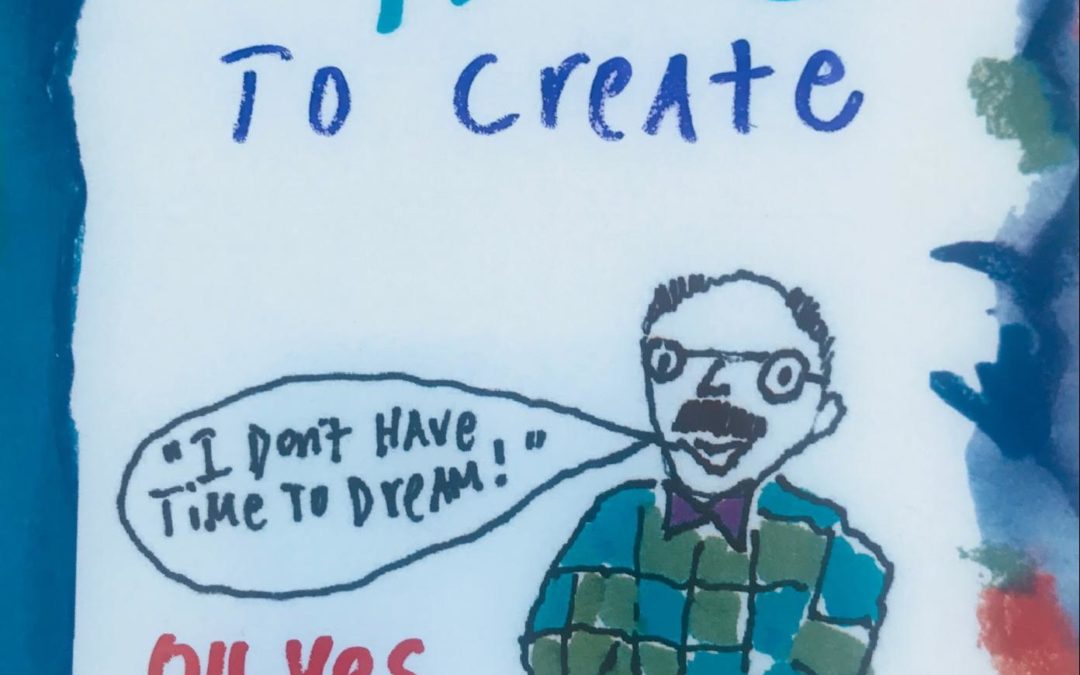 To create
"I Don't HAVE
TiMe To DreAM!"
OH Yes